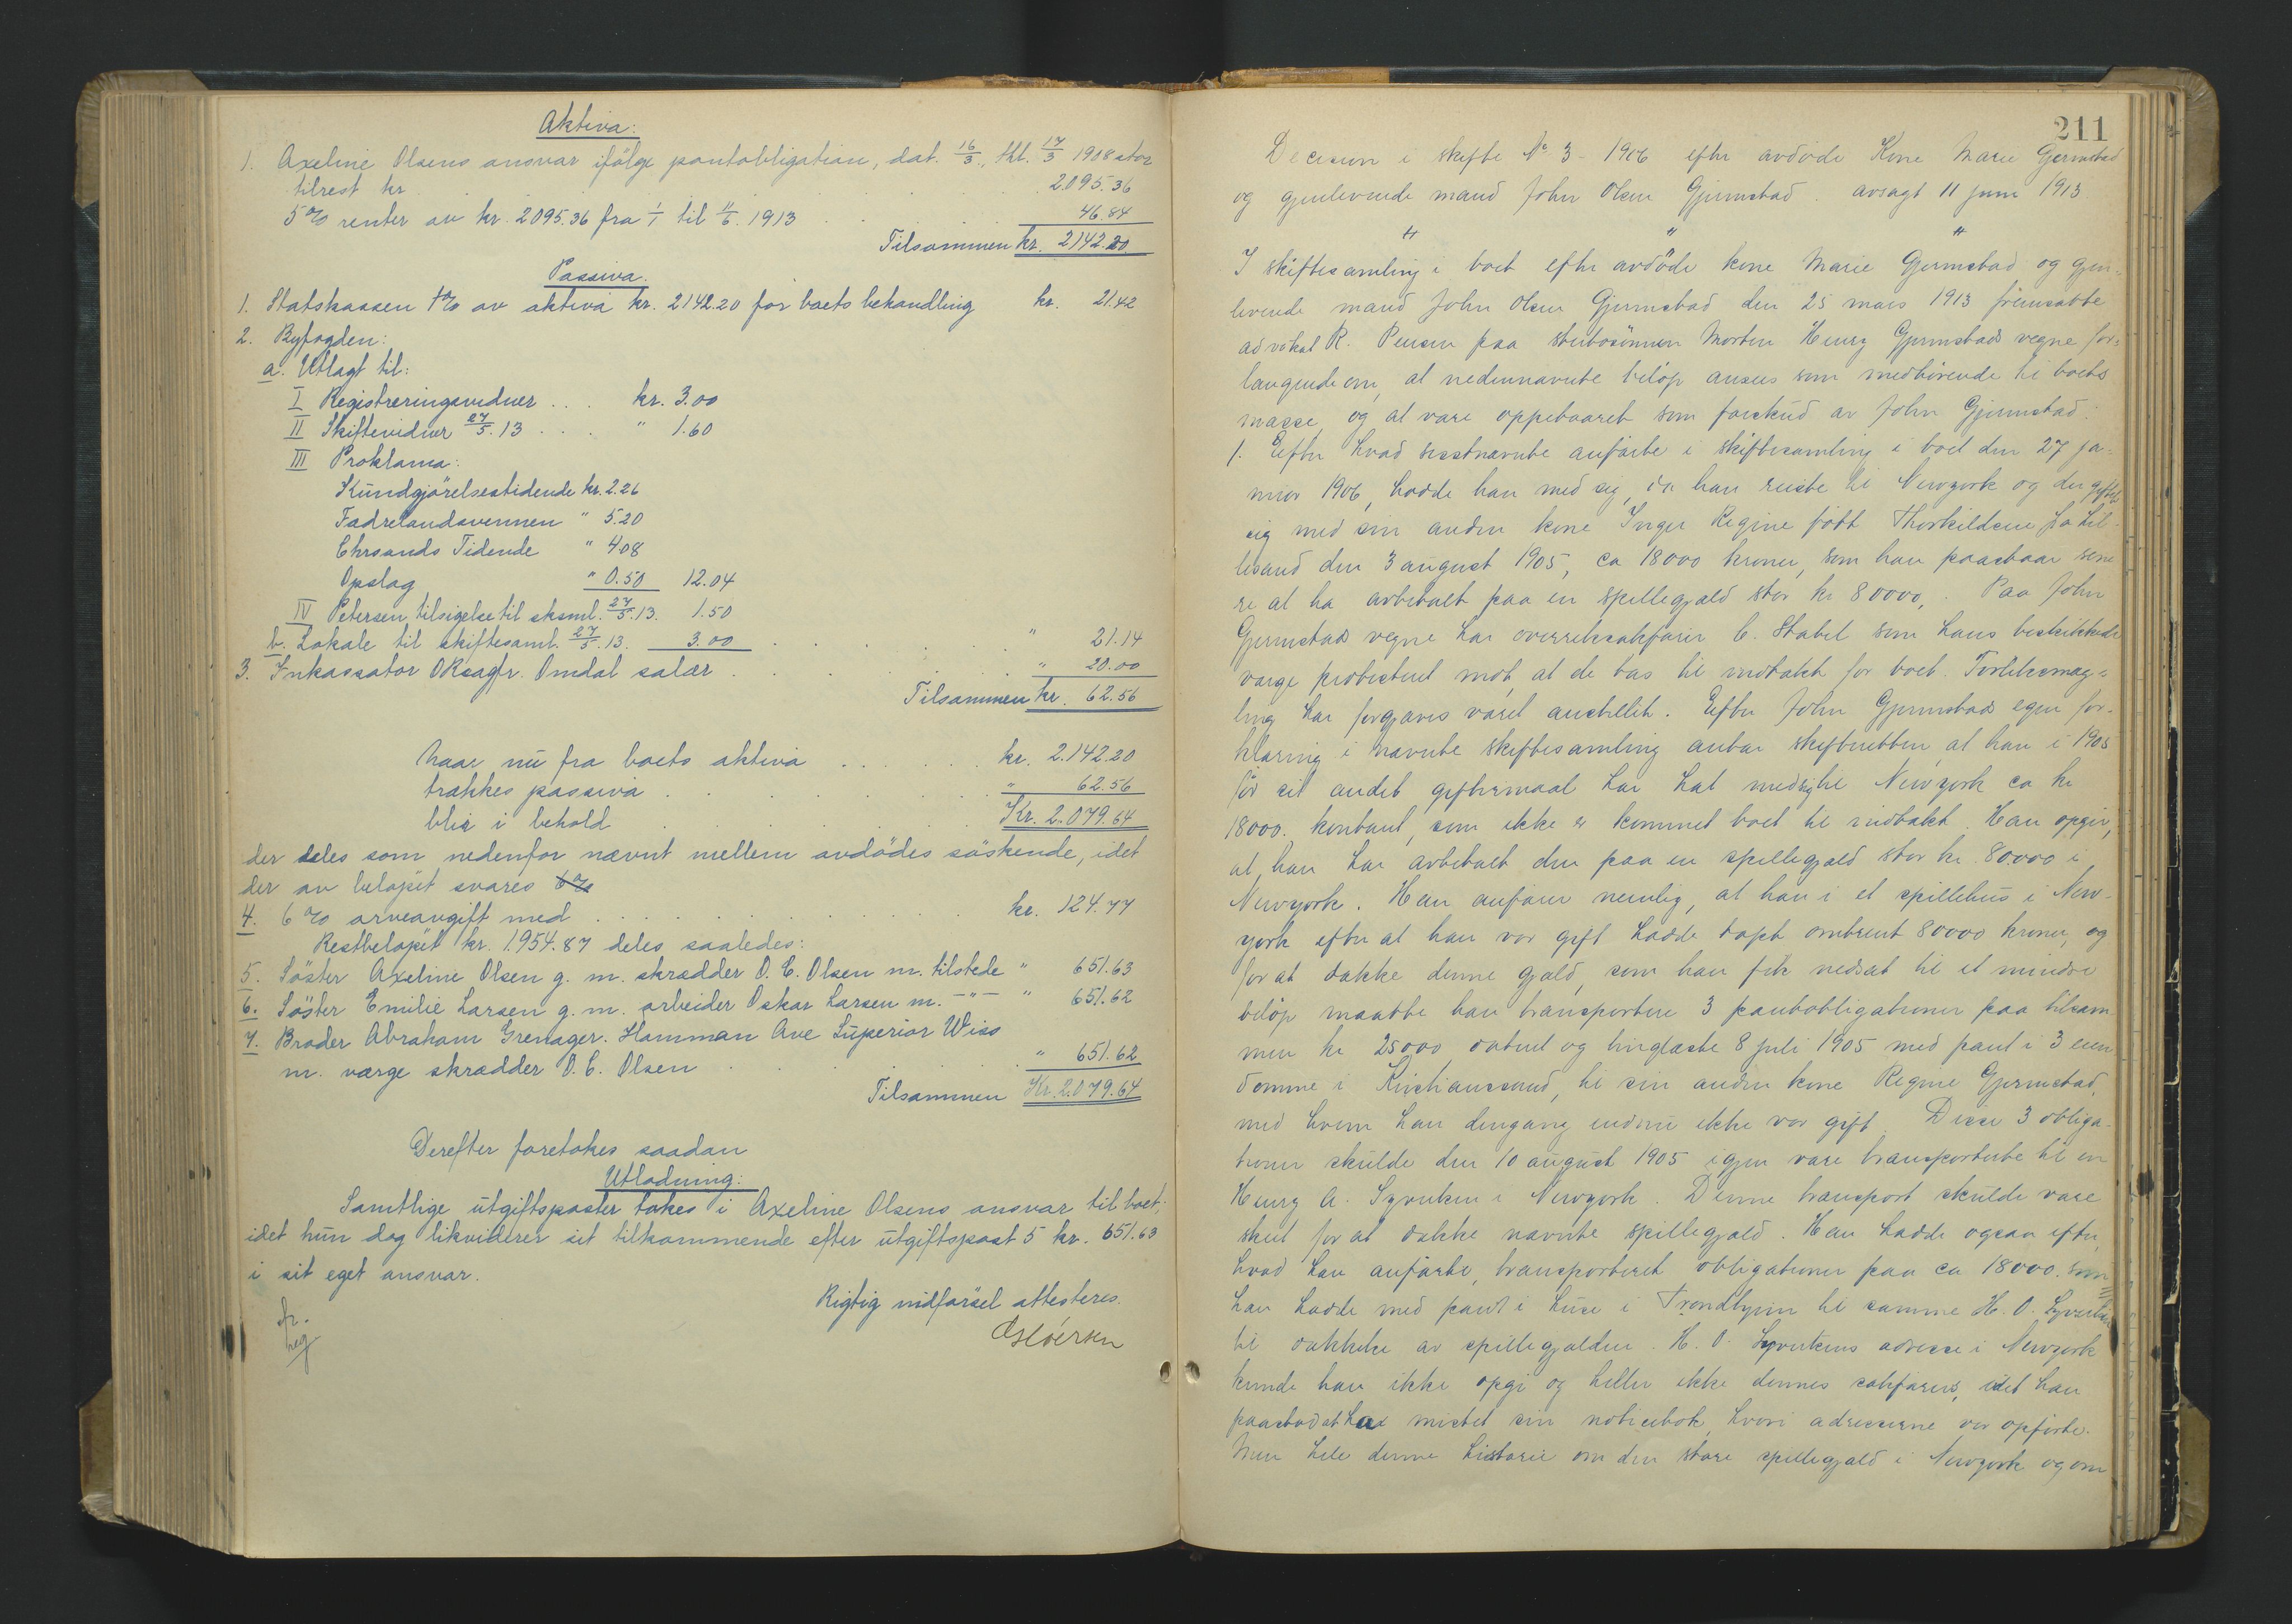 Aktiva:
1. Axeline Olsens ansvar ifölge pantobligation, dat. 16/3, tkl. 17/3 1908 stor
tilrest kr. 2095.36
5% renter av kr. 2095.36 fra 1/1 til 11/6. 1913 46.84
Tilsammen kr. 2142.20
Passiva.
1. Statskassen 1% av aktiva kr. 2142.20 for boets behandling kr. 21.42
2. Byfogden:
a. Utlagt til:
I Registreringsvidner . . . kr. 3.00
II Skiftevidner 27/5. 13 . . . " 1.60
III Proklama:
Kundgjörelsestidende kr. 2.26
Fædrelandsvennen " 5.20
Chrsands Tidende " 4.08
Opslag " 0.50 12.04
IV Petersen tilsigelse til sksml. 27/5. 13. 1.50
b. Lokale til skiftesaml. 27/5. 13. 3.00 " 21.14
3. Inkassator Omdal salær " 20.00
Tilsammen kr. 62.56
Naar nu fra boets aktiva kr. 2.142.20
trækkes passiva " 62.56
blir i behold Kr. 2.079.64
der deles som nedenfor nævnt mellem avdödes söskende, idet
der av belöpet svares 6%
4. 6% arveavgift med kr. 124.77
Restbelöpet kr. 1.954.87 deles saaledes:
5. Söster Axeline Olsen g. m. skrædder O. C. Olsen m. tilstede " 651.63
6. Söster Emilie Larsen g. m. arbeider Oskar Larsen m. -"- " 651.62
7. Broder Abraham Grenager. Hamman Ave Superior Wiss
m. værge skrædder O. C. Olsen " 651.62
Tilsammen Kr. 2.079.64
Derefter foretokes saadan
Utlodning:
Samtlige utgiftsposter tokes i Axeline Olsens ansvar til boet;
idet hun dog likviderer sit tilkommende efter utgiftspost 5 kr. 651.63
i sit eget ansvar.
Rigtig indförsel attesteres.
211
Decision i skifte No 3 - 1906 efter avdöde Kone Marie Gjermstad
og gjenlevende mand John Olsen Gjermstad. avsagt 11 juni 1913.
" " "
I skiftesamling i boet efter avdöde kone Marie Gjermstad og gjen-
levende mand John Olsen Gjermstad den 25 mars 1913 fremsatte
advokat R. Pensen paa stedsönnen Morten Henry Gjermstads vegne for-
langende om, at nedennævnte belöp ansees som medhörende til boets
masse, og at være oppebaaret som forskud av John Gjermstad:
1. Efter hvad sisstnævnte anförte i skiftesamling i boet den 27 ja-
nuar 1906, hadde han med sig, da han reiste til Newyork og der giftet
sig med sin anden kone Inger Regine födt Thorkildsen fra Lil-
lesand den 3 august 1905, ca 18000 kroner, som han paastaar sene-
re at ha avbetalt paa en spillegjæld stor kr 80000,. Paa John
Gjermstads vegne har overretssakförer C. Stabel som hans beskikkede
værge protesteret mot, at de tas til indtækt for boet. Forliksmæg-
ling har forgjæves været anstillet. Efter John Gjermstads egen for-
klaring i nævnte skiftesamling antar skifteretten, at han i 1905
för sit andet giftermaal har hat med sig til Newyork ca kr
18000. kontant, som ikke er kommet boet til indtækt. Han opgir,
at han har avbetalt den paa en spillegjæld stor kr. 80.000 i
Newyork. Han anförer nemlig, at han i et spillehus i New-
york efter at han var gift hadde tapt omtrent 80000 kroner, og
for at dække denne gjæld, som han fik nedsat til et mindre
belöp maatte han transportere 3 pantobligationer paa tilsam-
men kr 25000 datert og tinglæste 8 juli 1905 med pant i 3 eien-
domme i Kristianssand, til sin anden kone Regine Gjermstad,
med hvem han dengang endnu ikke var gift. Disse 3 obliga-
tioner skulde den 10 august 1905 igjen være transporterte til en
Henry A. i Newyork. Denne transport skulde være
skeet for at dække nævnte spillegjæld. Han hadde ogsaa efter,
hvad han anförte, transporteret obligationer paa ca 18000. som
han hadde med pant i huse i Trondhjem til samme H. O.
til dækkelse av spillegjælden. H. O. adresse i Newyork
kunde han ikke opgi og heller ikke dennes sakförers, idet han
paastod at ha mistet sin noticebok, hvori adresserne var opförte.
Men hele denne historie om den store spillegjæld i Newyork og om